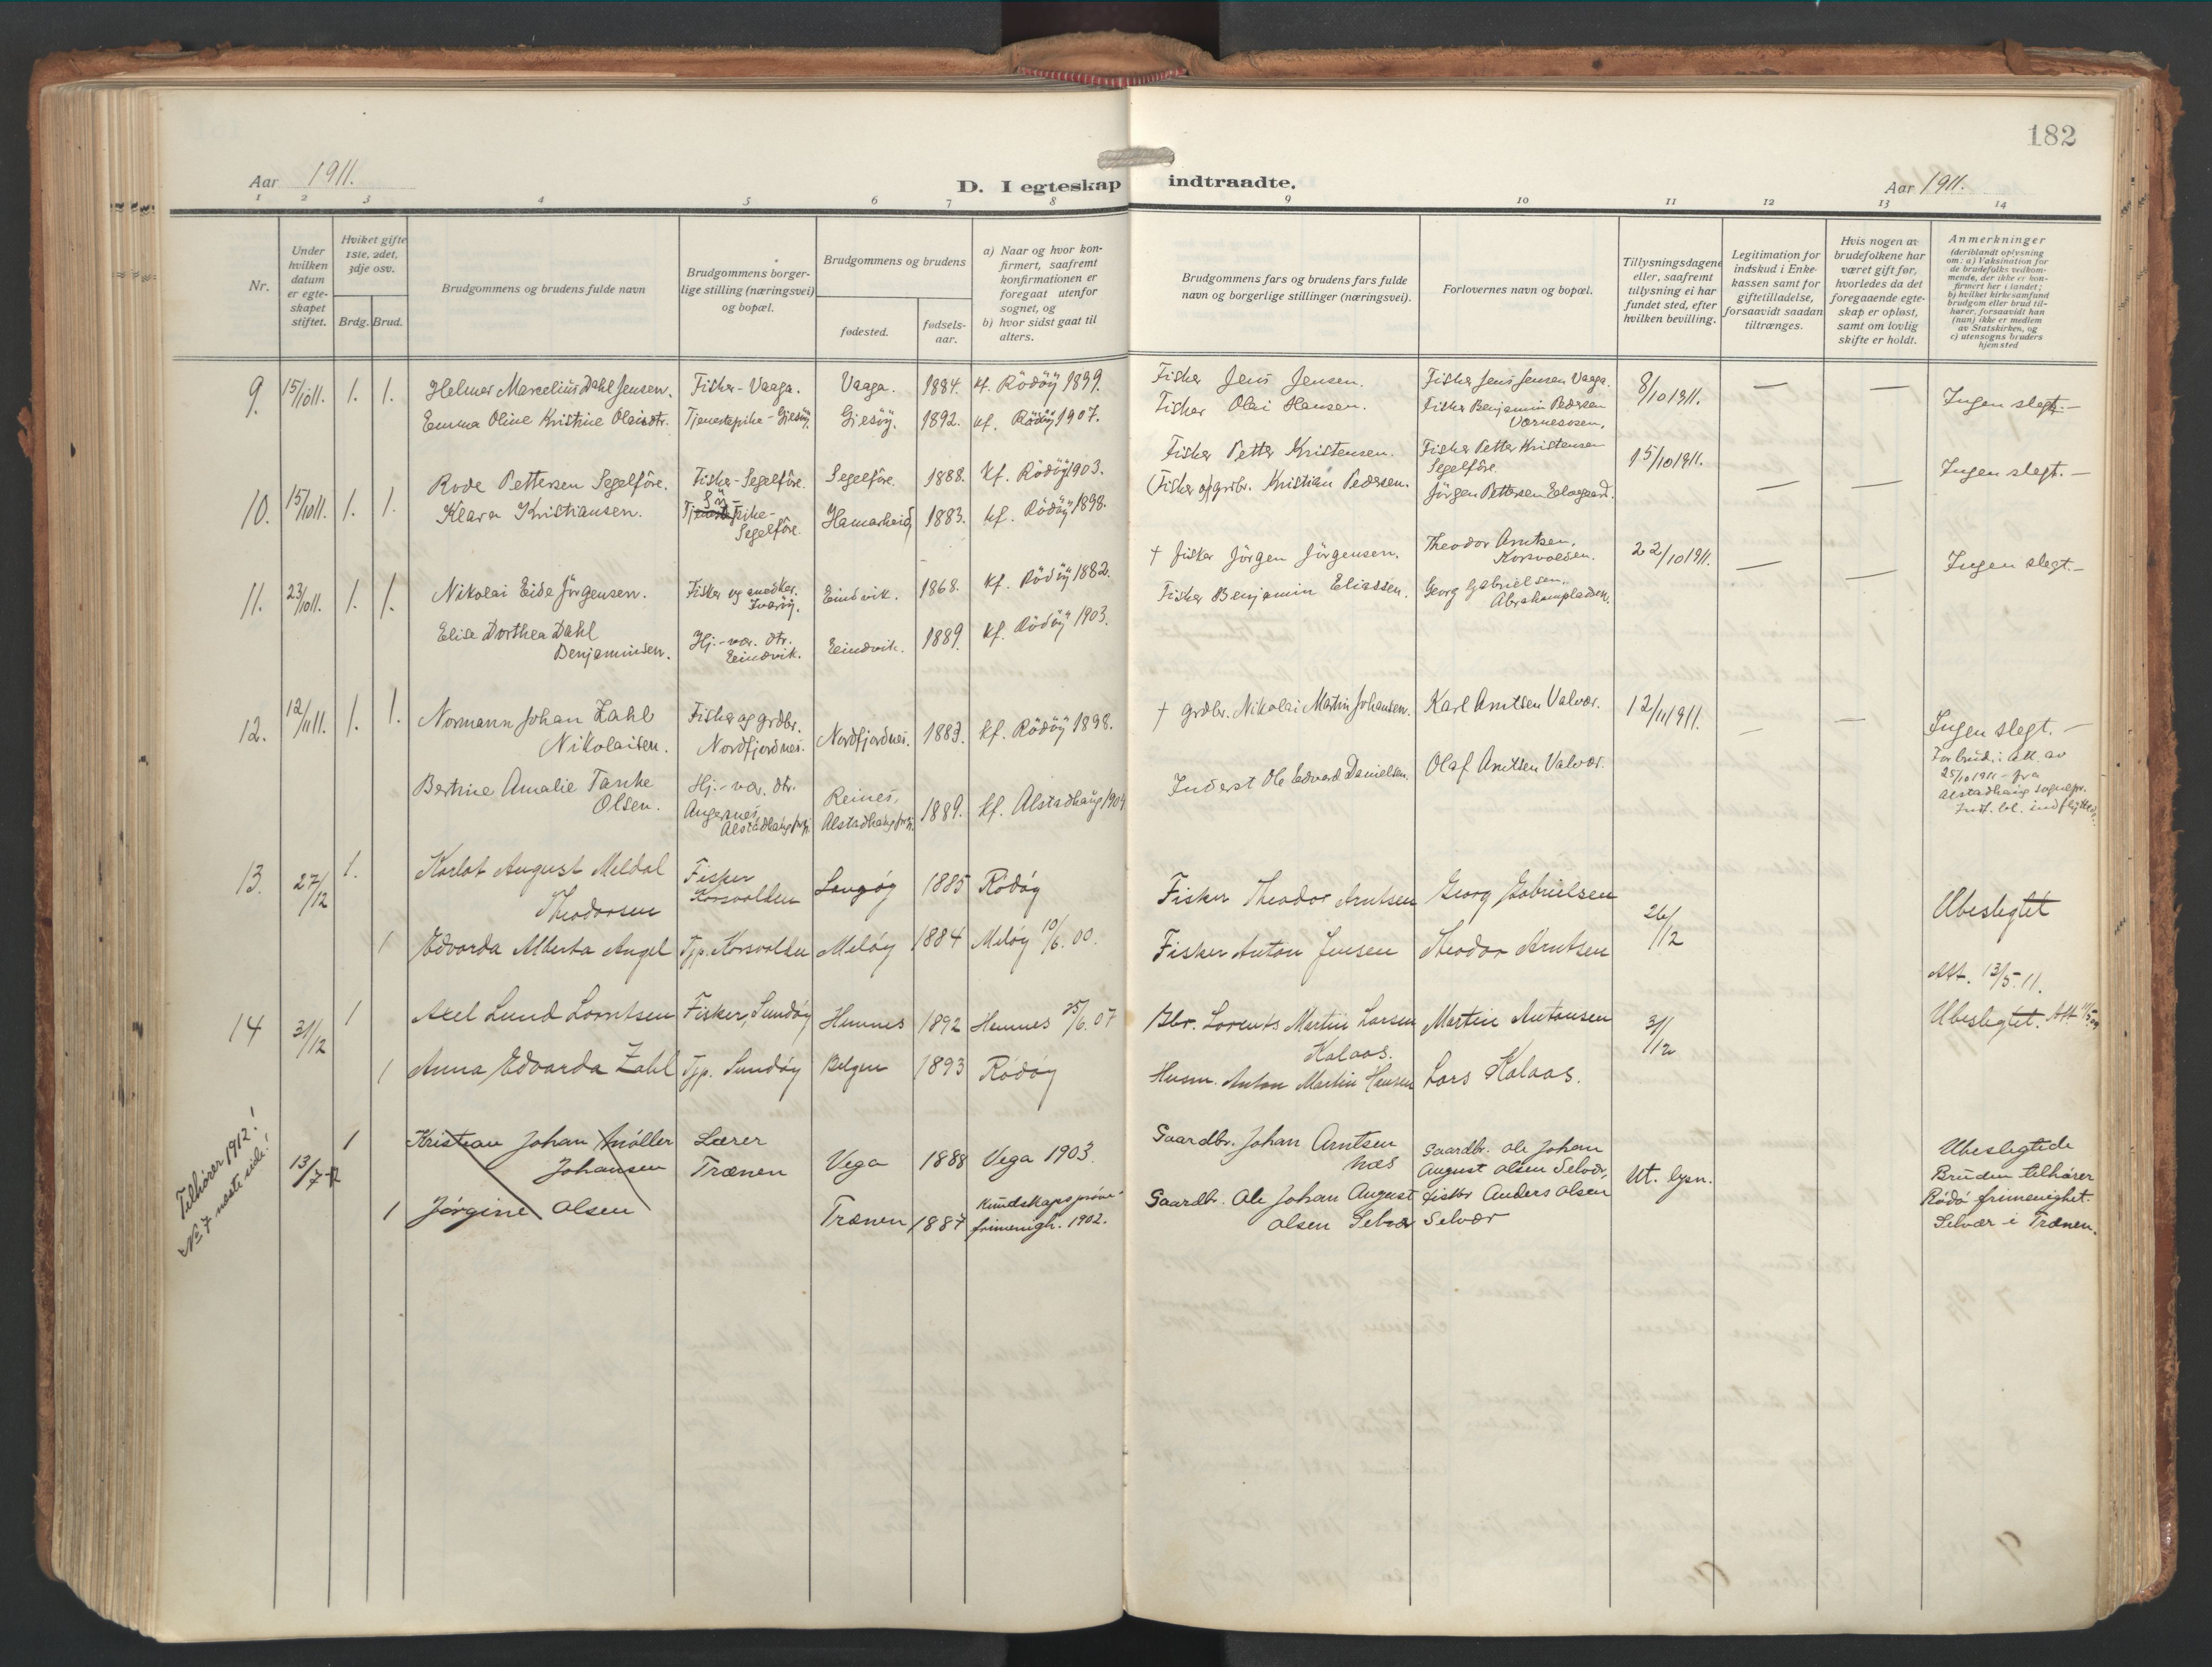 182
Aar 1911.
D. I egteskap indtraadte.
Aar 1911.
1 2 3 4 5 6 7 8 9 10 11 12 13 14
Nr.
Under hvilken datum er egteskapet stiftet.
Hviket gifte 1ste, 2det, 3dje osv.
Brdg. Brud.
Brudgommens og brudens fulde navn
Brudgommens borgerlige stilling (næringsvei) og bopæl.
Brudgommens og brudens
fødested.
fødselsaar.
a) Naar og hvor konfirmert, saafremt konfirmationen er foregaat utenfor sognet, og
b) hvor sidst gaat til alters.
Brudgommens fars og brudens fars fulde navn og borgerlige stillinger (næringsvei).
Forlovernes navn og bopæl.
Tillysningsdagene eller, saafremt tillysning ei har fundet sted, efter hvilken bevilling.
Legitimation for indskud i Enkekassen samt for giftetilladelse, forsaavidt saadan tiltrænges.
Hvis nogen av brudefolkene har været gift før, hvorledes da det foregaaende egteskap er opløst, samt om lovlig skifte er holdt.
Anmerkninger (deriblandt oplysning om: a) Vaksination for de brudefolks vedkommende, der ikke er konfirmert her i landet; b) hvilket kirkesamfund brudgom eller brud tilhører, forsaavidt han (hun) ikke er medlem av Statskirken, og c) utensogns bruders hjemsted
9. 15/10 11. 1. 1. Helmer Marcelius Dahl Jensen. Fisker - Vaaga. Vaaga. 1884. kf. Rödöÿ 1899. Fisker Jens Jensen. Fisker Jens Jensen Vaaga. 8/10 1911. — — Ingen slegt. —
Emma Oline Kristine Olaisdtr. Tjenestepike - Gjesöÿ. Gjesöÿ. 1892. kf. Rödöÿ 1907. Fisker Olai Hansen. Fisker Benjamin Pedersen Værnesosen.
10. 15/10 11. 1. 1. Rode Pettersen Segelföre. Fisker - Segelföre. Segelföre. 1888. kf. Rödöÿ 1903. Fisker Petter Kristensen. Fisker Petter Kristensen Segelföre. 15/10 1911. — — Ingen slegt. —
Klara Kristiansen. Tjenestepike - Segelföre. Hamarheid 1883. kf. Rödöÿ 1898. Fisker og grdbr. Kristian Pedersen. Jörgen Pettersen
11. 23/10 11. 1. 1. Nikolai Eide Jörgensen. Fisker og snedker. Eindvik. 1868. kf. Rödöÿ 1882. † fisker Jörgen Jörgensen. Theodor Arntsen. Korsvolden. 22/10 1911. — — Ingen slegt. —
Elise Dorthea Dahl Benjaminsen. Hj.-vær. dtr. Eindvik. Eindvik. 1889. kf. Rödöÿ 1903. Fisker Benjamin Eliassen. Georg Gabrielsen. Abrahampladsen.
12. 12/11 11. 1. 1. Normann Johan Zahl Nikolaisen. Fisker og grdbr. Nordfjordnes. Nordfjordnes. 1883. kf. Rödöÿ 1898. † grdbr. Nikolai Martin Johansen. Karl Arntsen Valvær. 12/11 1911. — — Ingen slegt. —
Bertine Amalie Tanke Olsen. Hj.-vær. dtr. Angersnes, Alstadhaug prgj. Reines, Alstadhaug prgj. 1889. kf. Alstadhaug 1904 Inderst Ole Edvard Danielsen. Olaf Arntsen Valvær. For brud: att. av 25/10 1911 - fra Alstadhaug sognepr.
13. 27/12 1. Karlot August Meldal Theodorsen Fisker Korsvolden Langøy 1885 Rödøy Fisker Theodor Arntsen Georg Gabrielsen 26/12 Ubeslegtet
1 Edvarda Alberta Angel Tjp. Korsvolden Meløy 1884 Meløy 10/6. 00. Fisker Anton Jensen Theodor Arntsen Att. 13/5. 11.
14 31/12 1 Axel Lund Lorntsen Fisker, Sundøy Hemnes 1892 Hemnes 25/6. 07 Gbr. Lorents Martin Larsen Kalaas. Martin Antonsen 31/12 Ubeslegtet.
1 Anna Edvarda Zahl Tjp. Sundøy Belgen 1893 Rødøy Husm. Anton Martin Hansen Lars Kalaas.
Tilhører 1912!
No 7 neste side!
13/7-12 1 Kristian Johan Møller Johansen Lærer Trænen Vega 1888 Vega 1903. Gaardbr. Johan Arntsen Næs Gaardbr. Ole Johan August Olsen Selvær. Ut. lysn. Ubeslegtede
1 Jørgine Olsen Trænen 1887 Kundskapsprøve frimenigh. 1902. Gaardbr. Ole Johan August Olsen Selvær Fiskbr Anders Olsen Selvær Bruden tilhører Rødø frimenighet. Selvær i Trænen.